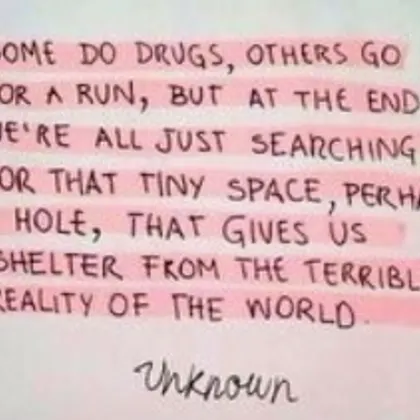 OME DO DRUGS, OTHERS GO
OR A RUN, BUT AT THE END
E'RE ALL JUST SEARCHING
OR THAT TINY SPACE, PERHA
HOLE, THAT GIVES US
SHELTER FROM THE TERRIBL
REALITY OF THE WORLD.
Unknown